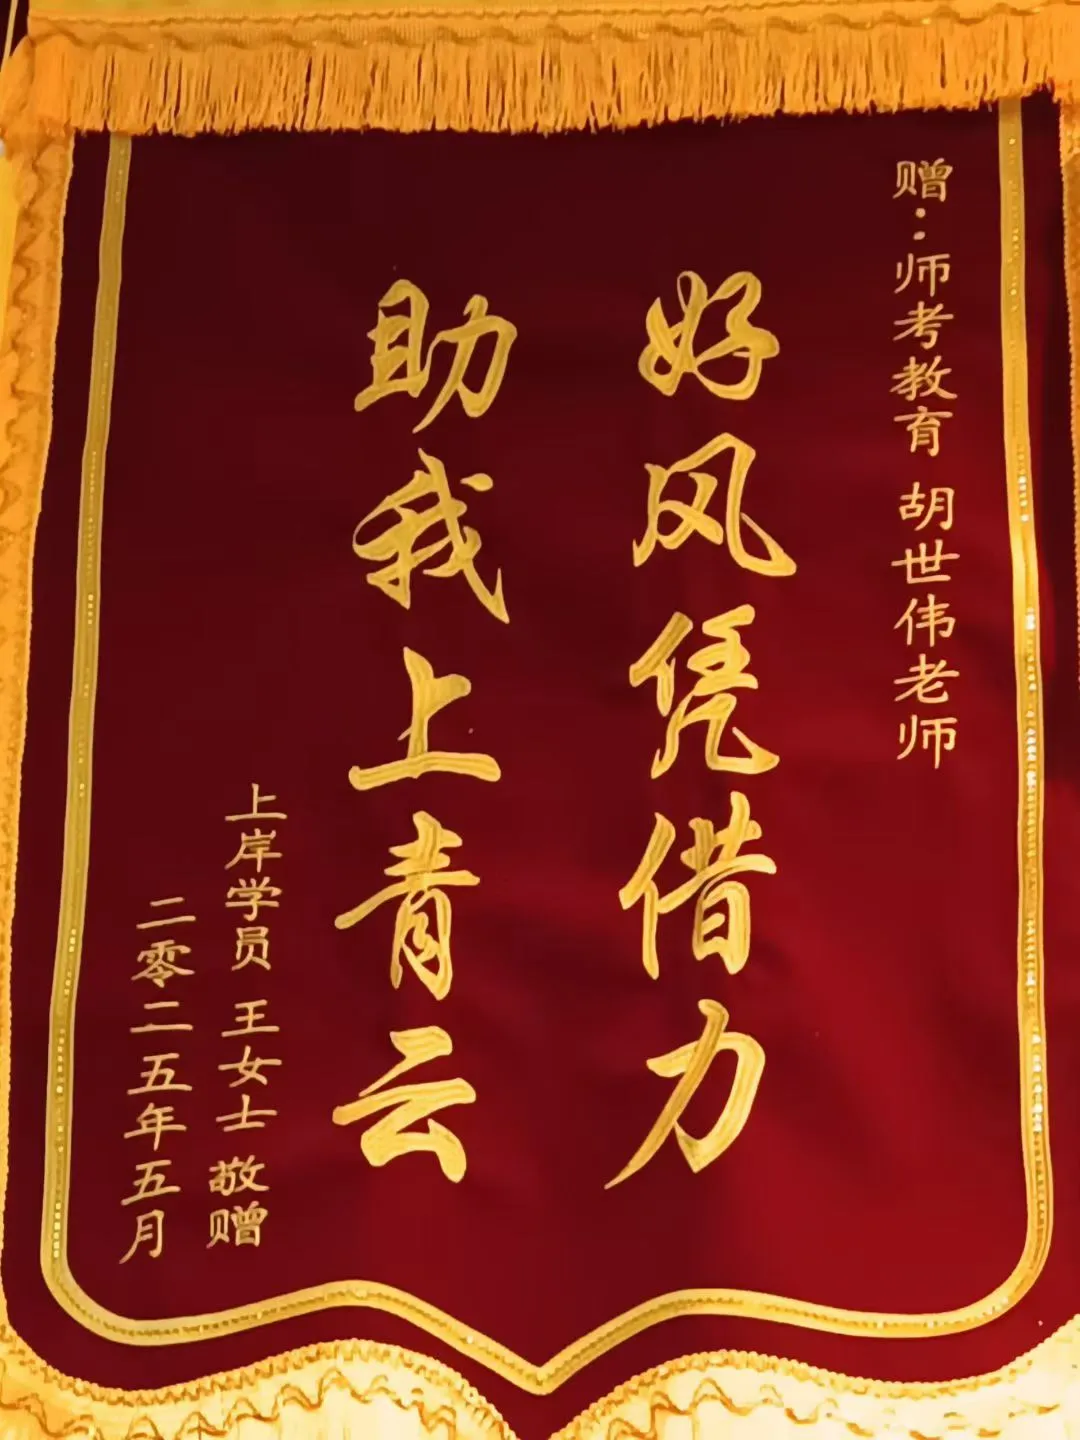 赠：师考教育 胡世伟老师
好风凭借力
助我上青云
上岸学员 王女士 敬赠
二零二五年五月